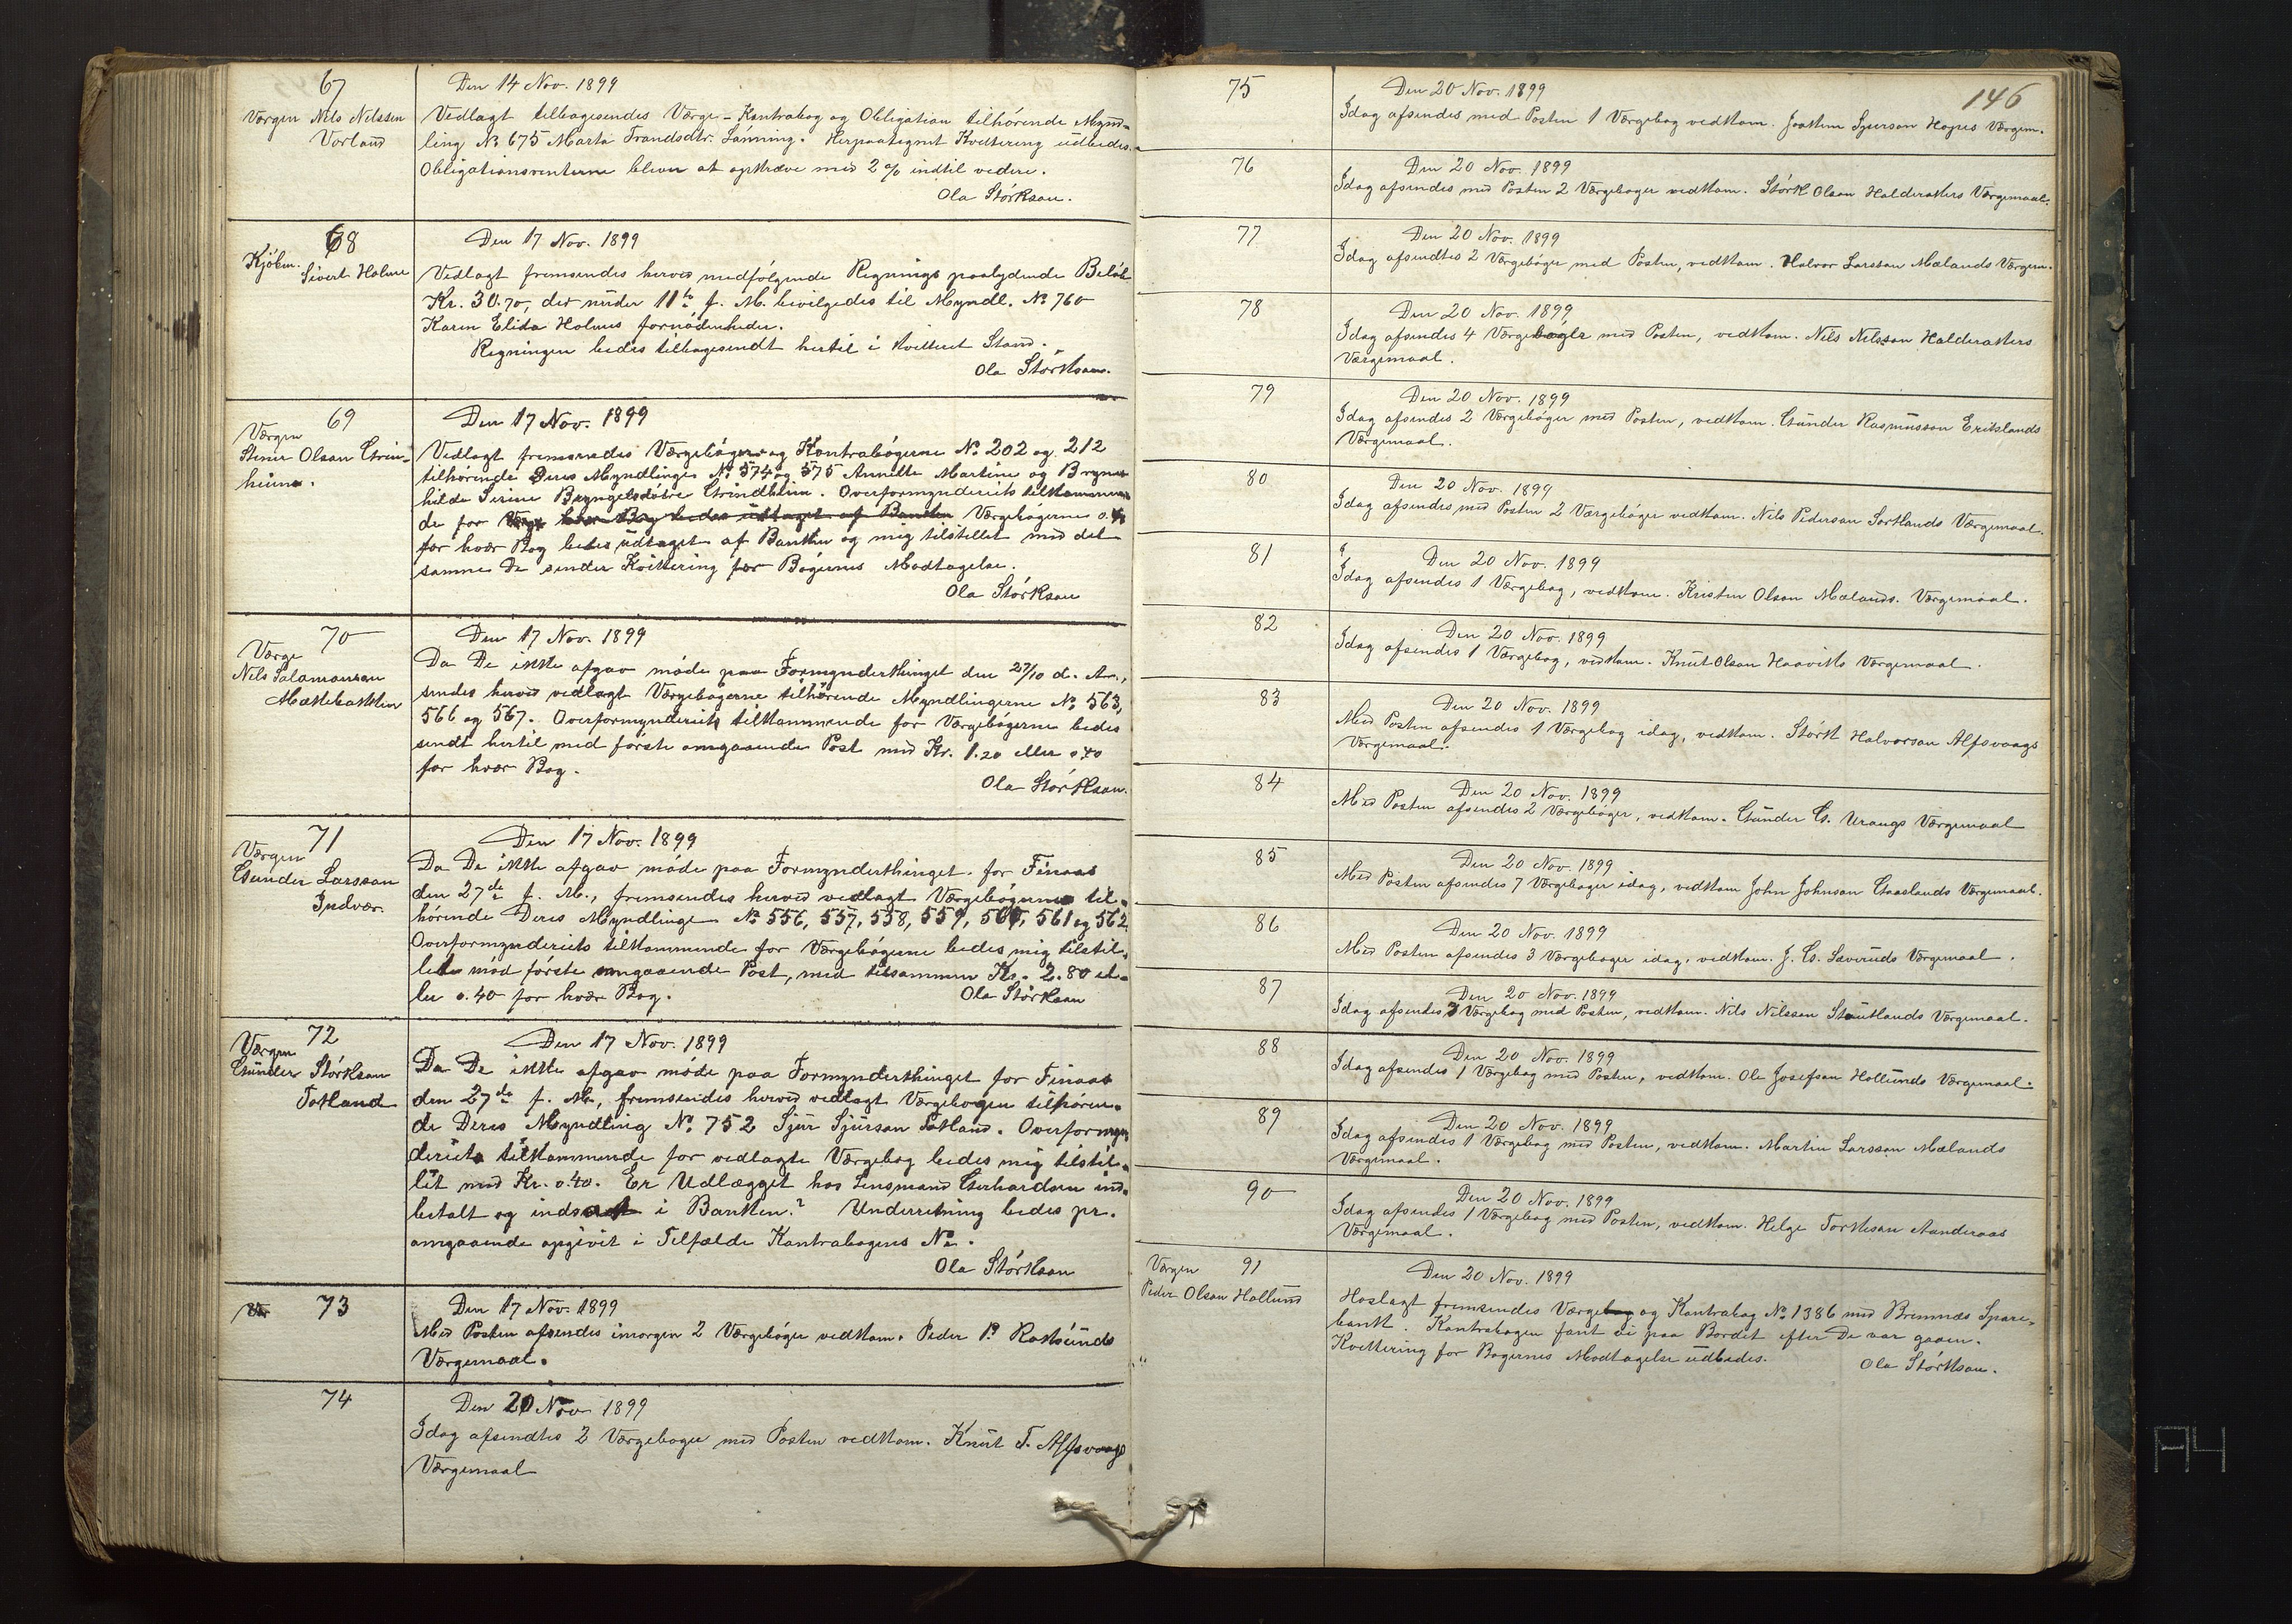 67
Værgen Nils Nilssen
Vorland
Den 14 Nov. 1899
Vedlagt tilbagesendes Værge- Kontrabog og Obligation tilhørende Mynd-
ling No 675 Marta Trandsdtr. Lønning. Herpaategnet Kvittering udbedes.
Obligationsrenterne bliver at opkræve med 2 % indtil videre.
Ola Størkson.
68
Kjøbm. Sivert Holme
Den 17 Nov. 1899
Vedlagt fremsendes herved medfølgende Regnings paalydende Beløb
Kr. 30.70, der under 11te f. M. bevilgedes til Myndl. No 760
Karen Elida Holmes fornødenheder.
Regningen bedes tilbagesendt hertil i kvitteret Stand.
Ola Størkson.
69
Værgen
Steiner Olson Grin-
heim.
Den 17 Nov. 1899
Vedlagt fremsendes Værgebøger og Kontrabøgerne No 202 og 212
tilhørende Deres Myndlinge No 574 og 575 Annette Martine og Bryne-
hilde Serine Bryngelsdøtre Grindheim. Overformynderiets tilkommen-
de for Værge hver Bog bedes udtaget af Banken Værgebøgerne 0.40
for hver Bog bedes udtaget af Banken og mig tilstillet med det
samme De sender Kvittering for Bøgernes Modtagelse.
Ola Størkson
70
Værge
Nils Salamonson
Mækkebakken
Den 17 Nov. 1899
Da De ikke afgav møde paa Formynderthinget den 27/10 d. Ar.,
sendes herved vedlagt Værgebøgerne tilhørende Myndlingerne No 563,
566 og 567. Overformynderiets tilkommende for Værgebøgerne bedes
sendt hertil med første omgaaende Post med Kr. 1.20 eller 0.40
for hver Bog.
Ola Størkson.
71
Værgen
Gunder Larsson
Indvær.
Den 17 Nov. 1899
Da De ikke afgav møde paa Formynderthinget for Finaas
den 27de f. M., fremsendes herved vedlagt Værgebøgerne til-
hørende Deres Myndlinge No 556, 557, 558, 559, 560, 561 og 562
Overformynderiets tilkommende for Værgebøgerne bedes mig tilstil-
let med første omgaaende Post, med tilsammen Kr. 2.80 el-
ler 0.40 for hver Bog.
Ola Størkson
72
Værgen
Gunder Størkson
Totland
Den 17 Nov. 1899
Da De ikke afgav møde paa Formynderthinget for Finaas
den 27de f. M., fremsendes herved vedlagt Værgebogen tilhøren-
de Deres Myndling No 752 Sjur Sjurson Totland. Overformyn-
deriets tilkommende for vedlagte Værgebog bedes mig tilstil-
let med Kr. 0.40. Er Udlægget hos Lensmand Gerhardsen ind-
betalt og indsat i Banken? Underretning bedes pr.
omgaaende opgivet i Tilfælde Kontrabogens No.
Ola Størkson
73
Den 17 Nov. 1899
Med Posten afsendes imorgen 2 Værgebøger vedkom. Peder P. Røksunds
Værgemaal.
74
Den 20 Nov 1899
Idag afsendtes 2 Værgebøger med Posten vedkom. Knut T. Alfsvaags
Værgemaal
146
75
Den 20 Nov. 1899
Idag afsendes med Posten 1 Værgebog vedkom. Joakim Sjurson Hopes Værgem.
76
Den 20 Nov. 1899
Idag afsendes med Posten 2 Værgebøger vedkom. Størk Olson Halderakers Værgemaal.
77
Den 20 Nov. 1899
Idag afsendtes 2 Værgebøger med Posten, vedkom. Halvor Larsson Mælands Værgem.
78
Den 20 Nov. 1899
Idag afsendes 4 Værgebøger med Posten, vedkom. Nils Nilsson Halderakers
Værgemaal.
79
Den 20 Nov. 1899
Idag afsendes 2 Værgebøger med Posten, vedkom. Gunder Rasmusson Erikslands
Værgemaal.
80
Den 20 Nov. 1899
Idag afsendes med Posten 2 Værgebøger vedkom. Nils Pederson Sortlands Værgemaal.
81
Den 20 Nov. 1899
Idag afsendes 1 Værgebog, vedkom. Kristen Olson Mælands. Værgemaal.
82
Den 20 Nov. 1899
Idag afsendes 1 Værgebog, vedkom. Knut Olson Haaviks Værgemaal.
83
Den 20 Nov. 1899
Med Posten afsendes 1 Værgebog idag, vedkom. Størk Halvorson Alfsvaags
Værgemaal.
84
Den 20 Nov. 1899
Med Posten afsendes 2 Værgebøger, vedkom. Gunder G. Urangs Værgemaal
85
Den 20 Nov. 1899
Med Posten afsendes 7 Værgebøger idag, vedkom John Johnson Gaaslands Værgemaal.
86
Den 20 Nov. 1899
Med Posten afsendes 3 Værgebøger idag, vedkom. J. G. Løveruds Værgemaal.
87
Den 20 Nov. 1899
Idag afsendes 3 Værgebog med Posten, vedkom. Nils Nilsson Stautlands Værgemaal.
88
Den 20 Nov. 1899
Idag afsendes 1 Værgebog med Posten, vedkom. Ole Josefson Hollunds Værgemaal.
89
Den 20 Nov. 1899
Idag afsendes 1 Værgebog med Posten, vedkom. Martin Larsson Mælands
Værgemaal.
90
Den 20 Nov. 1899
Idag afsendes 1 Værgebog med Posten, vedkom. Helge Torkelson Aanderaas
Værgemaal.
91
Værgen
Peder Olson Hollund
Den 20 Nov. 1899
Hoslagt fremsendes Værgebog og Kontrabog No 1386 med Bremnæs Spare-
bank. Kontrabogen fant vi paa Bordet efter De var gaaen.
Kvittering for Bøgernes Modtagelse udbedes.
Ola Størkson.